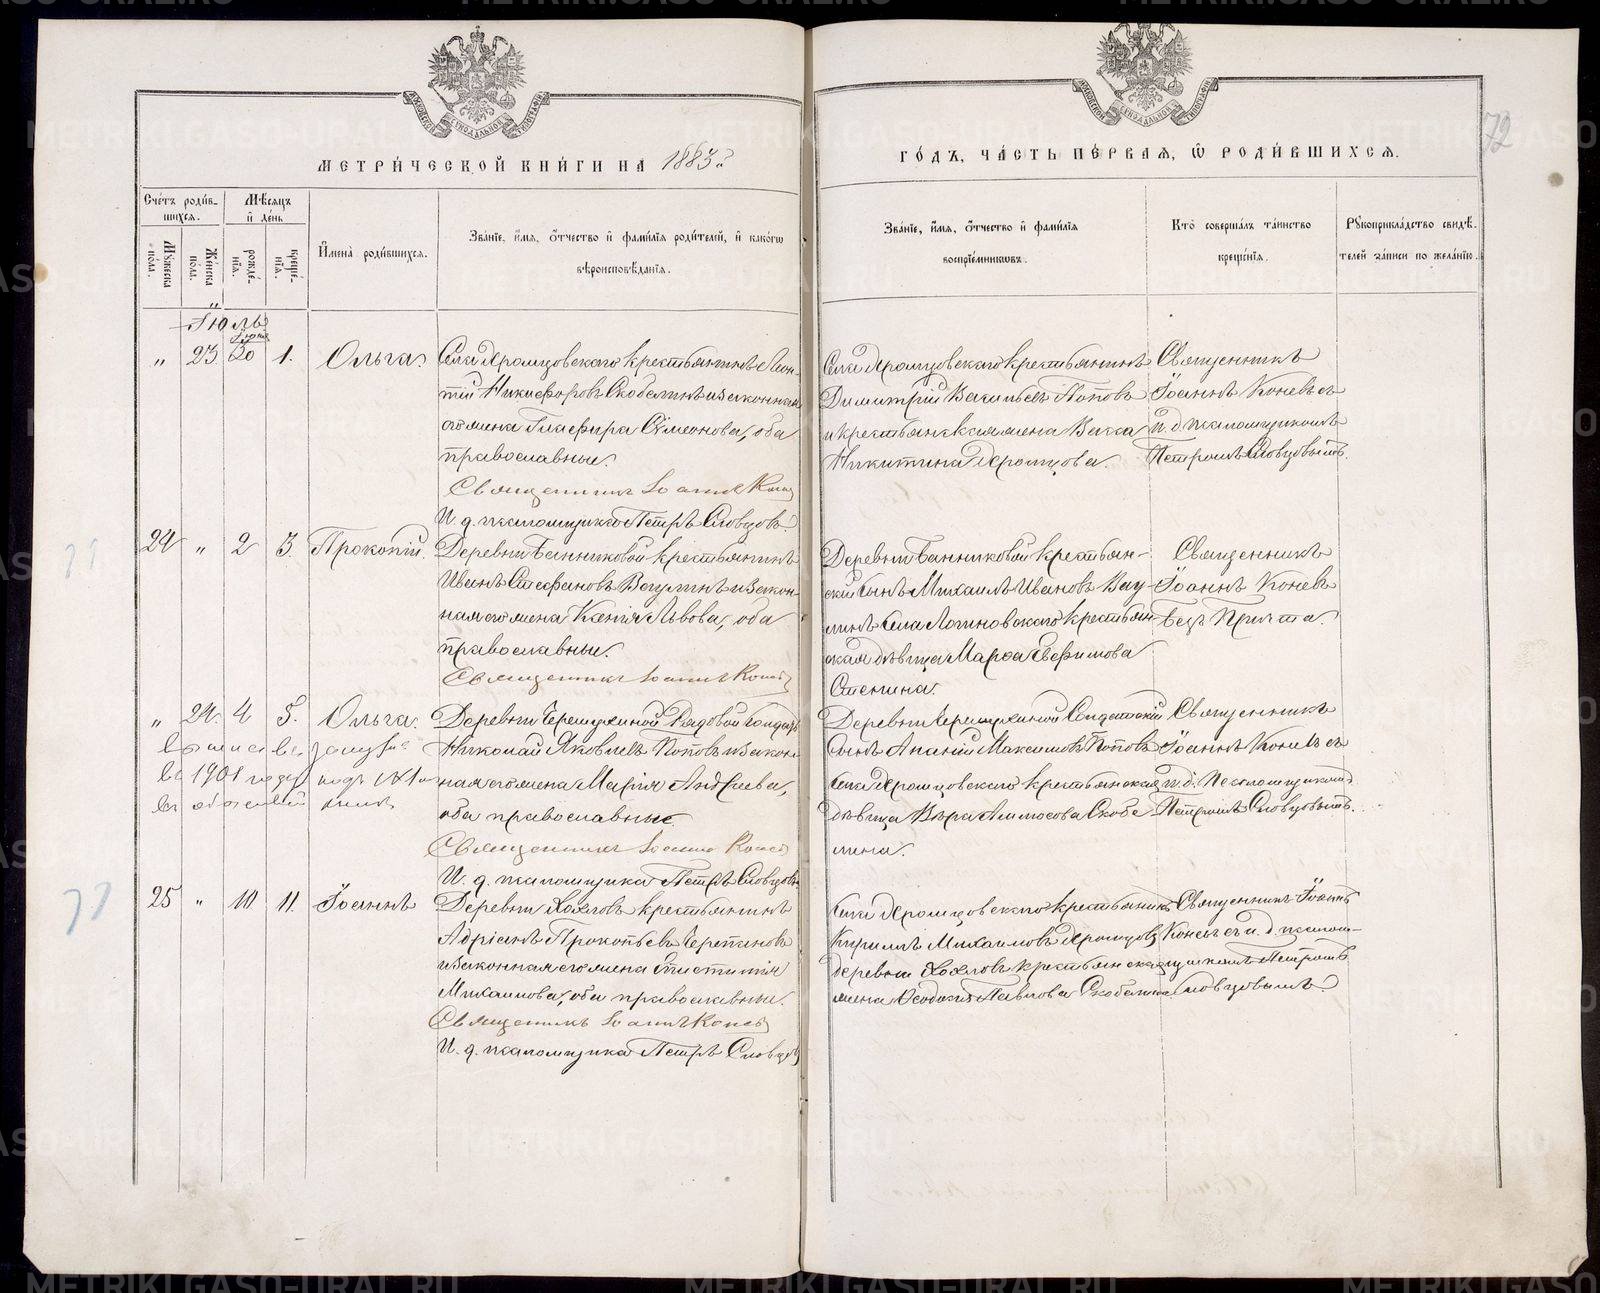 МЕТРИ́ЧЕСКОЙ КНИ́ГИ НА 1883 г.
ГО́ДЪ, ЧА́СТЬ ПЕ́РВАЯ, Ѽ РОДИ́ВШИХСЯ.
72
Сче́тъ роди́в-
шихся.
Мѣ́сяцъ
и҆ де́нь
Мꙋ́жеска
по́ла.
Же́нска
по́ла.
рожде́-
нїя.
креще́-
нїя.
И҆мена̀ роди́вшихся.
Зва́нїе, и҆́мя, ѻ҆́тчество и҆ фами́лїя роди́телей, и҆ како́гѡ
вѣроисповѣ́данїя.
Зва́нїе, и҆́мя, ѻ҆́тчество и҆ фами́лїя
воспрїе́мниковъ.
Кто̀ соверша́лъ та́инство
креще́нїя.
Рꙋкоприкла́дство свидѣ́-
телей за́писи по жела́нїю.
Іюль
Іюня
" 23. 30 1. Ольга. Села Хромцовскаго крестьянинъ Леон-
тій Никифоровъ Скобелинъ и законная
его жена Глафира Сѵмеонова, оба
православные.
Священникъ Іоаннъ Коневъ
И. д. псаломщика Петръ Словцовъ.
Села Хромцовскаго крестьянинъ
Димитрій Васильевъ Поповъ
и крестьянская жена Васса
Никитина Хромцова.
Священникъ
Іоаннъ Коневъ съ
и. д. псаломщикомъ
Петромъ Словцовымъ.
24 " 2 3. Прокопій. Деревни Банниковой крестьянинъ
Иванъ Стефановъ Вагулинъ и закон-
ная его жена Ксенія Львова, оба
православные.
Священникъ Іоаннъ Коневъ
Деревни Банниковой крестьян-
скій сынъ Михаилъ Ивановъ Вагу-
линъ Села Логиновскаго крестьян-
ская дѣвица Марѳа Евфимова
Стенина.
Священникъ
Іоаннъ Коневъ
безъ причта.
" 24. 4 5. Ольга. Деревни Черемухиной Рядовой солдатъ
Николай Яковлевъ Поповъ и закон-
ная его жена Марія Андреева,
оба православные.
Священникъ Іоаннъ Коневъ
И. д. псаломщика Петръ Словцовъ
въ 1901 году подъ № 1
Деревни Черемухиной Солдатскій
сынъ Ананій Максимовъ Поповъ
села Хромцовскаго крестьянская
дѣвица Вѣра Амосова Скобе-
лина.
Священникъ
Іоаннъ Коневъ съ
и. д. Псаломщикомъ
Петромъ Словцовымъ.
25 " 10 11. Іоаннъ Деревни Хохловъ крестьянинъ
Адріанъ Прокопьевъ Черепановъ
и законная его жена Епистимія
Михаилова, оба православные.
Священникъ Іоаннъ Коневъ
И. д. псаломщика Петръ Словцовъ
Села Хромцовскаго крестьянинъ
Кириллъ Михаиловъ Хромцовъ
деревни Хохловъ крестьянская
жена Ѳеодосія Павлова Скобелина.
Священникъ Іоаннъ
Коневъ съ и. д. псалом-
щикомъ Петромъ
Словцовымъ.
METRIKI.GASO-URAL.RU